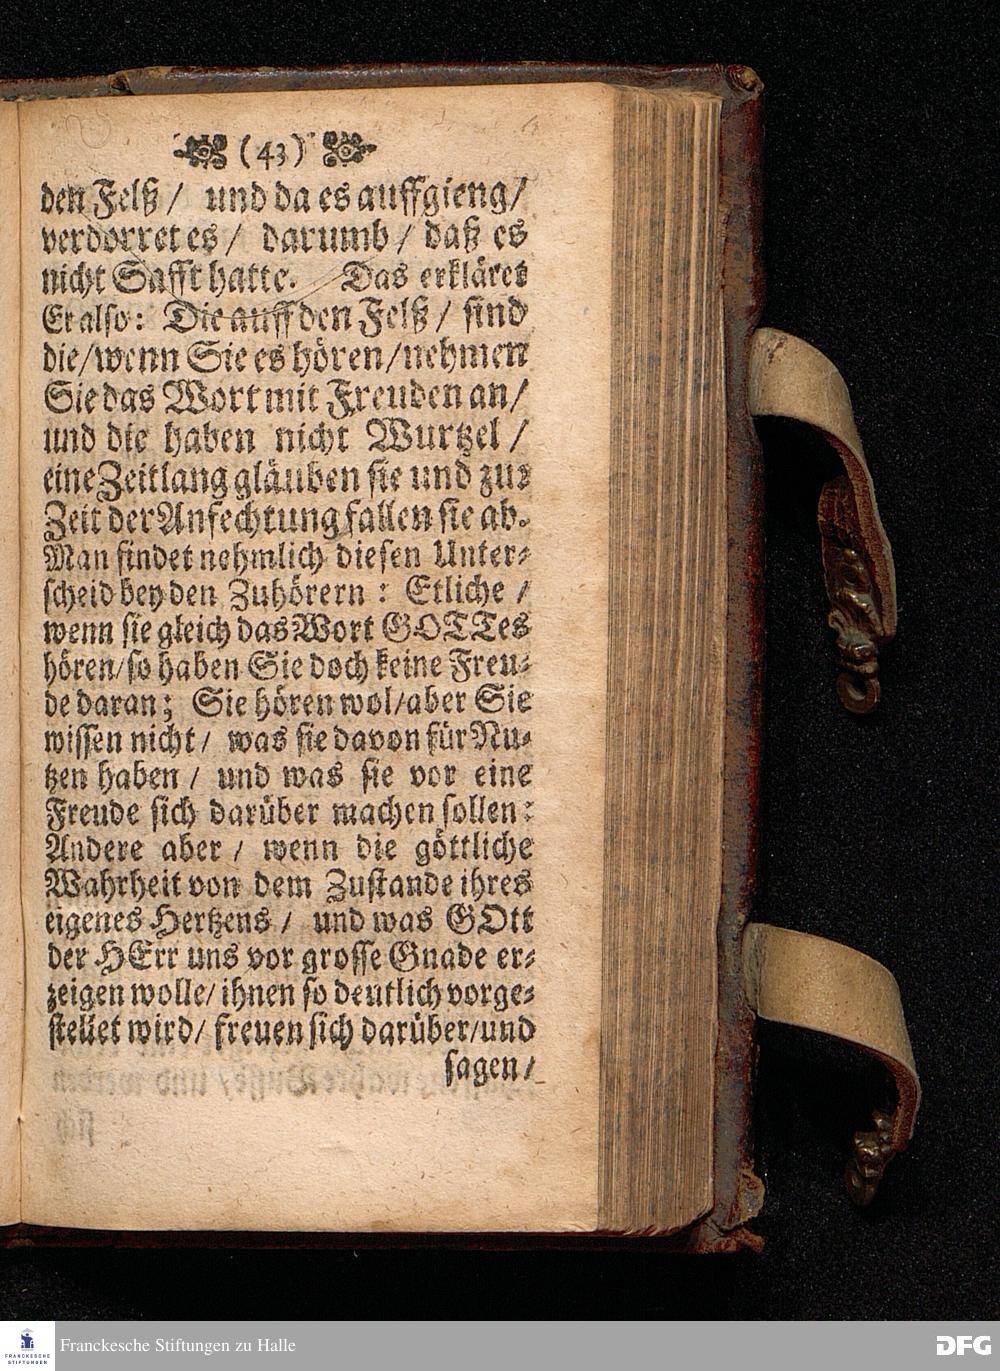 (43)
den Felß / und da es auffgieng/
verdorret es / darumb / daß es
nicht Safft hatte. Das erkläret
Er also: Die auff den Felß / sind
die/wenn Sie es hören/nehmen
Sie das Wort mit Freuden an/
und die haben nicht Wurtzel /
eine Zeitlang gläuben sie und zur
Zeit der Anfechtung fallen sie ab.
Man findet nehmlich diesen Unter-
scheid bey den Zuhörern : Etliche /
wenn sie gleich das Wort GOTTes
hören/so haben Sie doch keine Freu-
de daran; Sie hören wol/aber Sie
wissen nicht / was sie davon für Nu-
tzen haben / und was sie vor eine
Freude sich darüber machen sollen:
Andere aber / wenn die göttliche
Wahrheit von dem Zustande ihres
eigenes Hertzens / und was GOtt
der HErr uns vor grosse Gnade er-
zeigen wolle/ ihnen so deutlich vorge-
stellet wird/ freuen sich darüber/und
sagen/
FRANCKESCHE
STIFTUNGEN
Franckesche Stiftungen zu Halle
DFG